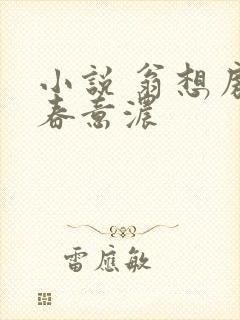 小說 翁想
春意濃
雷應敏